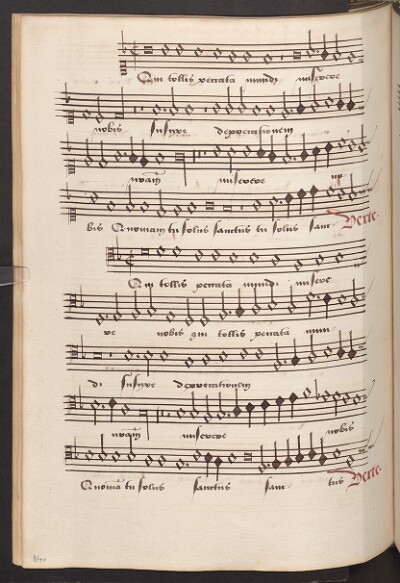 Qui tollis peccata mundi miserere
nobis Suscipe deprecationem
nostram miserere no
bis Quoniam tu solus sanctus tu solus sanc
Verte.
Qui tollis peccata mundi misere
re nobis qui tollis peccata mun
di Suscipe deprecationem
nostram miserere nobis
Quoniam tu solus sanctus sanc tus
Verte.